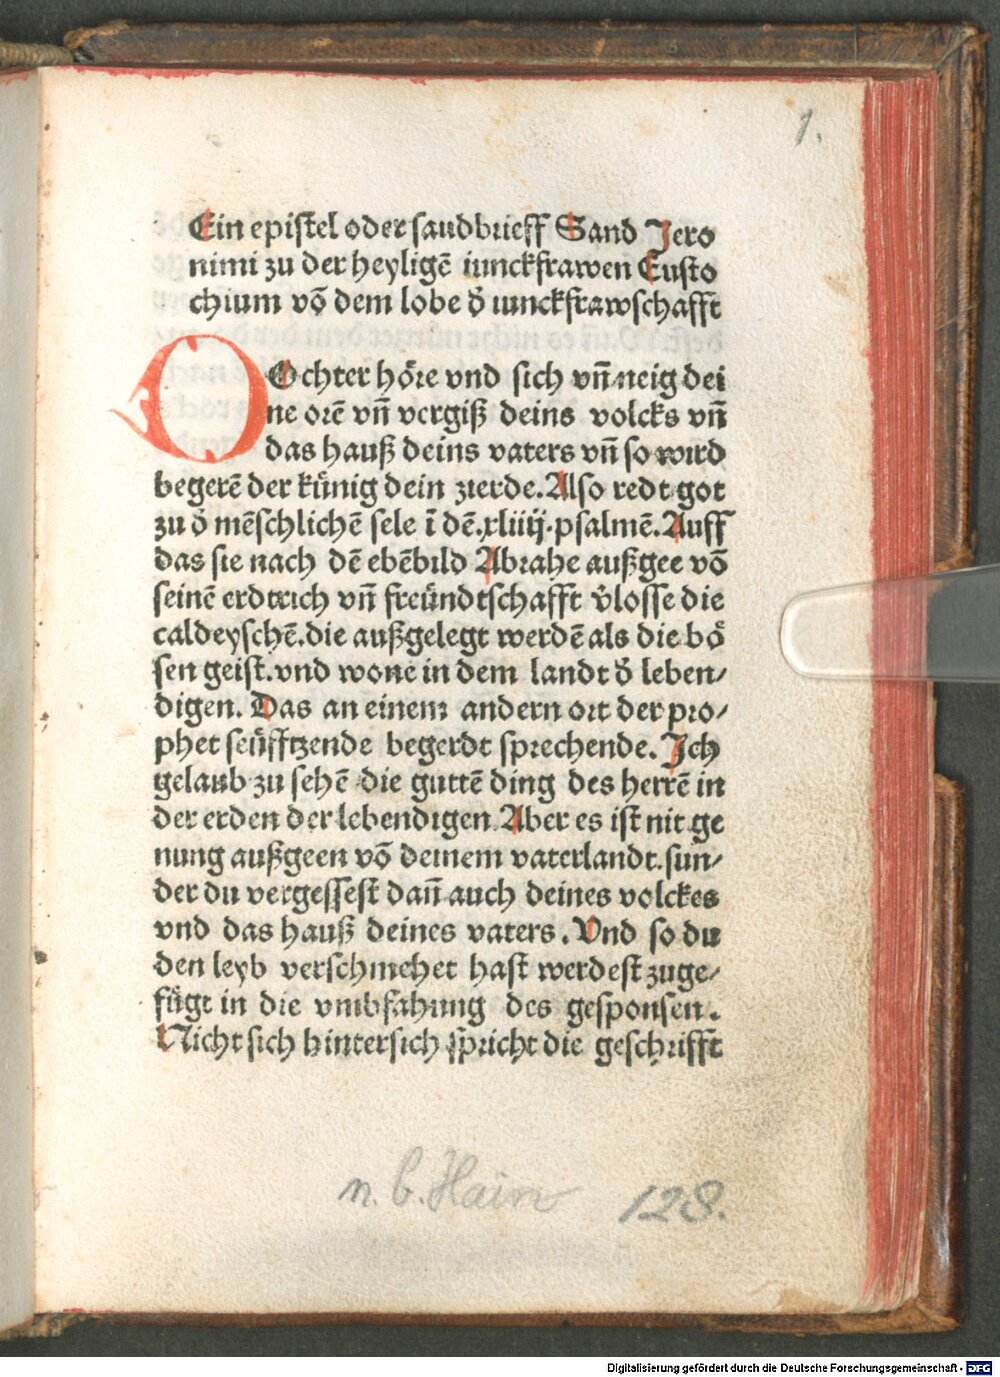 1.
Ein epistel oder sandbrieff Sand Jero
nimi zu der heyligē iunckfrawen Eusto
chium vō dem lobe d̕ iunckfrawschafft
O Ochter höre vnd sich vn̄ neig dei
ne orē vn̄ vergiß deins volcks vn̄
das hauß deins vaters vn̄ so wird
begerē der künig dein zierde. Also redt got
zu d̕ mēschlichē sele ī dē .xliiij. psalmē. Auff
das sie nach dē ebēbild Abrahe außgee vō
seinē erdtrich vn̄ freündtschafft v̕losse die
caldeyschē. die außgelegt werdē als die bö
sen geist. vnd wone in dem landt d̕ leben/
digen. Das an einem andern ort der pro/
phet seüfftzende begerdt sprechende. Ich
gelaub zu sehē die guttē ding des herrē in
der erden der lebendigen. Aber es ist nit ge
nung außgeen vō deinem vaterlandt. sun/
der du vergessest dan̄ auch deines volckes
vnd das hauß deines vaters. Vnd so du
den leyb verschmehet hast werdest zuge/
fügt in die vmbfahung des gesponsen.
Nicht sich hintersich spricht die geschrifft
n. b. Hain 128.
Digitalisierung gefördert durch die Deutsche Forschungsgemeinschaft - DFG